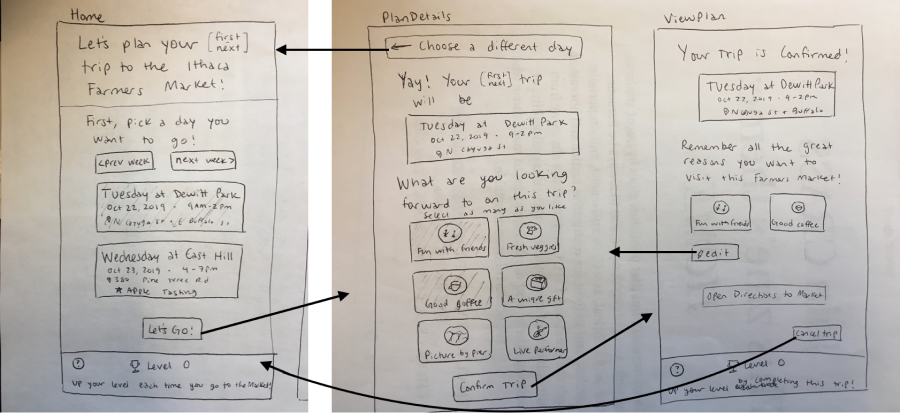 Home
Let's plan your [first/next]
trip to the Ithaca
Farmers Market!
First, pick a day you
want to go!
<prev week
next week>
Tuesday at Dewitt Park
Oct 22, 2019 · 9AM-2pm
@ N Cayuga St + E Buffalo St
Wednesday at East Hill
Oct 23, 2019 · 4-7pm
Pine Rd
★ Apple Tasting
Let's Go!
?
Level 0
Up your level each time you go to the Market!
PlanDetails
← Choose a different day
Yay! Your [first/next] trip
will be
Tuesday at Dewitt Park
Oct 22, 2019 · 9-2pm
@ N Cayuga St
What are you looking
forward to on this trip?
Select as many as you like
Fun with friends
Fresh veggies
Good coffee
A unique gift
Picture by pier
Live Performer
Confirm Trip
ViewPlan
Your Trip is Confirmed!
Tuesday at Dewitt Park
Oct 22, 2019 · 9-2pm
@ N Cayuga St + Buffalo
Remember all the great
reasons you want to
visit this Farmers Market!
Fun with friends
Good coffee
edit
Open Directions to Market
Cancel trip
?
Level 0
Up your level by completing this trip!